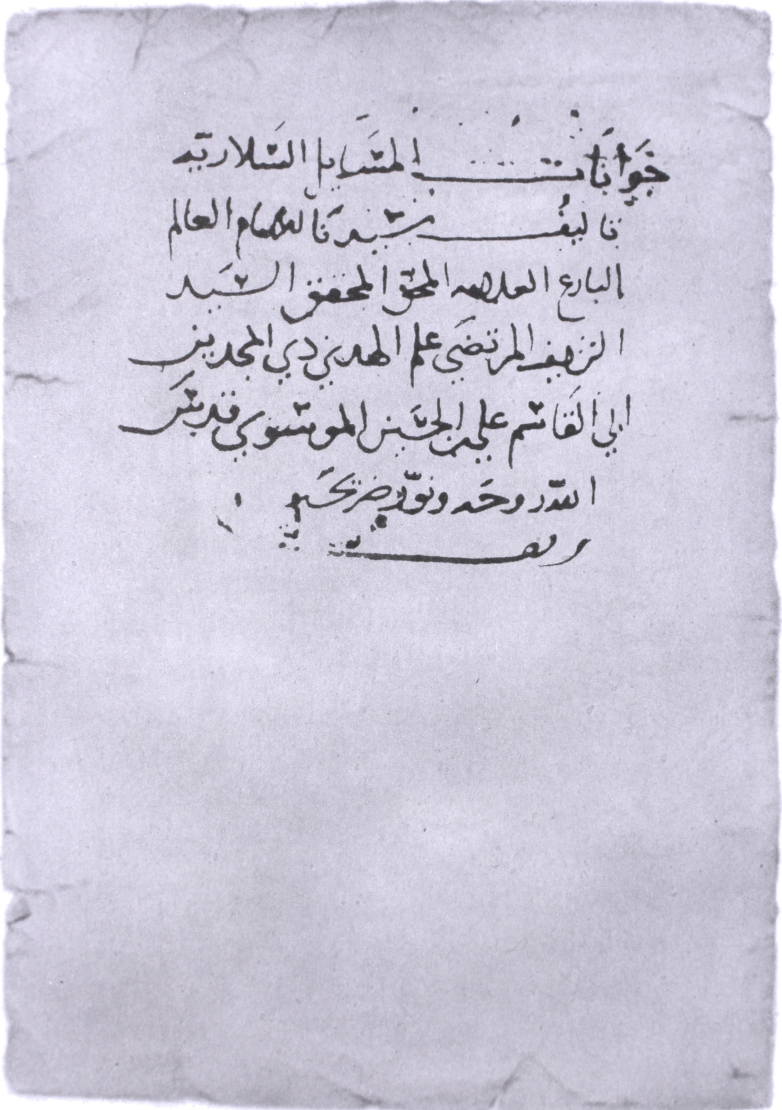 جوابات المسايل السلارية
تاليف سيدنا الامام العالم
البارع العلامه المحق المحقق السيد
الشريف المرتضي علم الهدي ذي المجدين
ابي القاسم علي بن الحسين الموسوي قدس
الله روحه ونور ضريحه